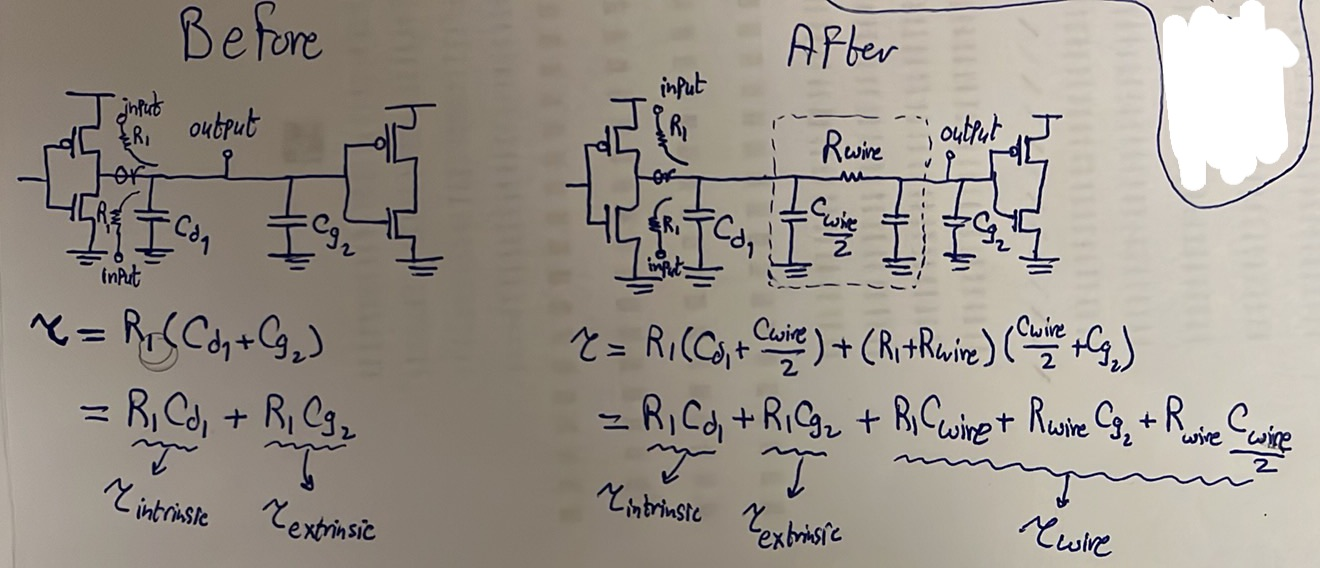 Before
input
R₁
output
or
R₁
Cd₁
Cg₂
input
τ = R₁(Cd₁+Cg₂)
= R₁Cd₁ + R₁Cg₂
τintrinsic
τextrinsic
After
input
R₁
Rwire
output
or
R₁
Cd₁
Cwire/2
Cg₂
input
τ = R₁(Cd₁+Cwire/2)+(R₁+Rwire)(Cwire/2+Cg₂)
= R₁Cd₁ + R₁Cg₂ + R₁Cwire + Rwire Cg₂ + Rwire Cwire/2
τintrinsic
τextrinsic
τwire